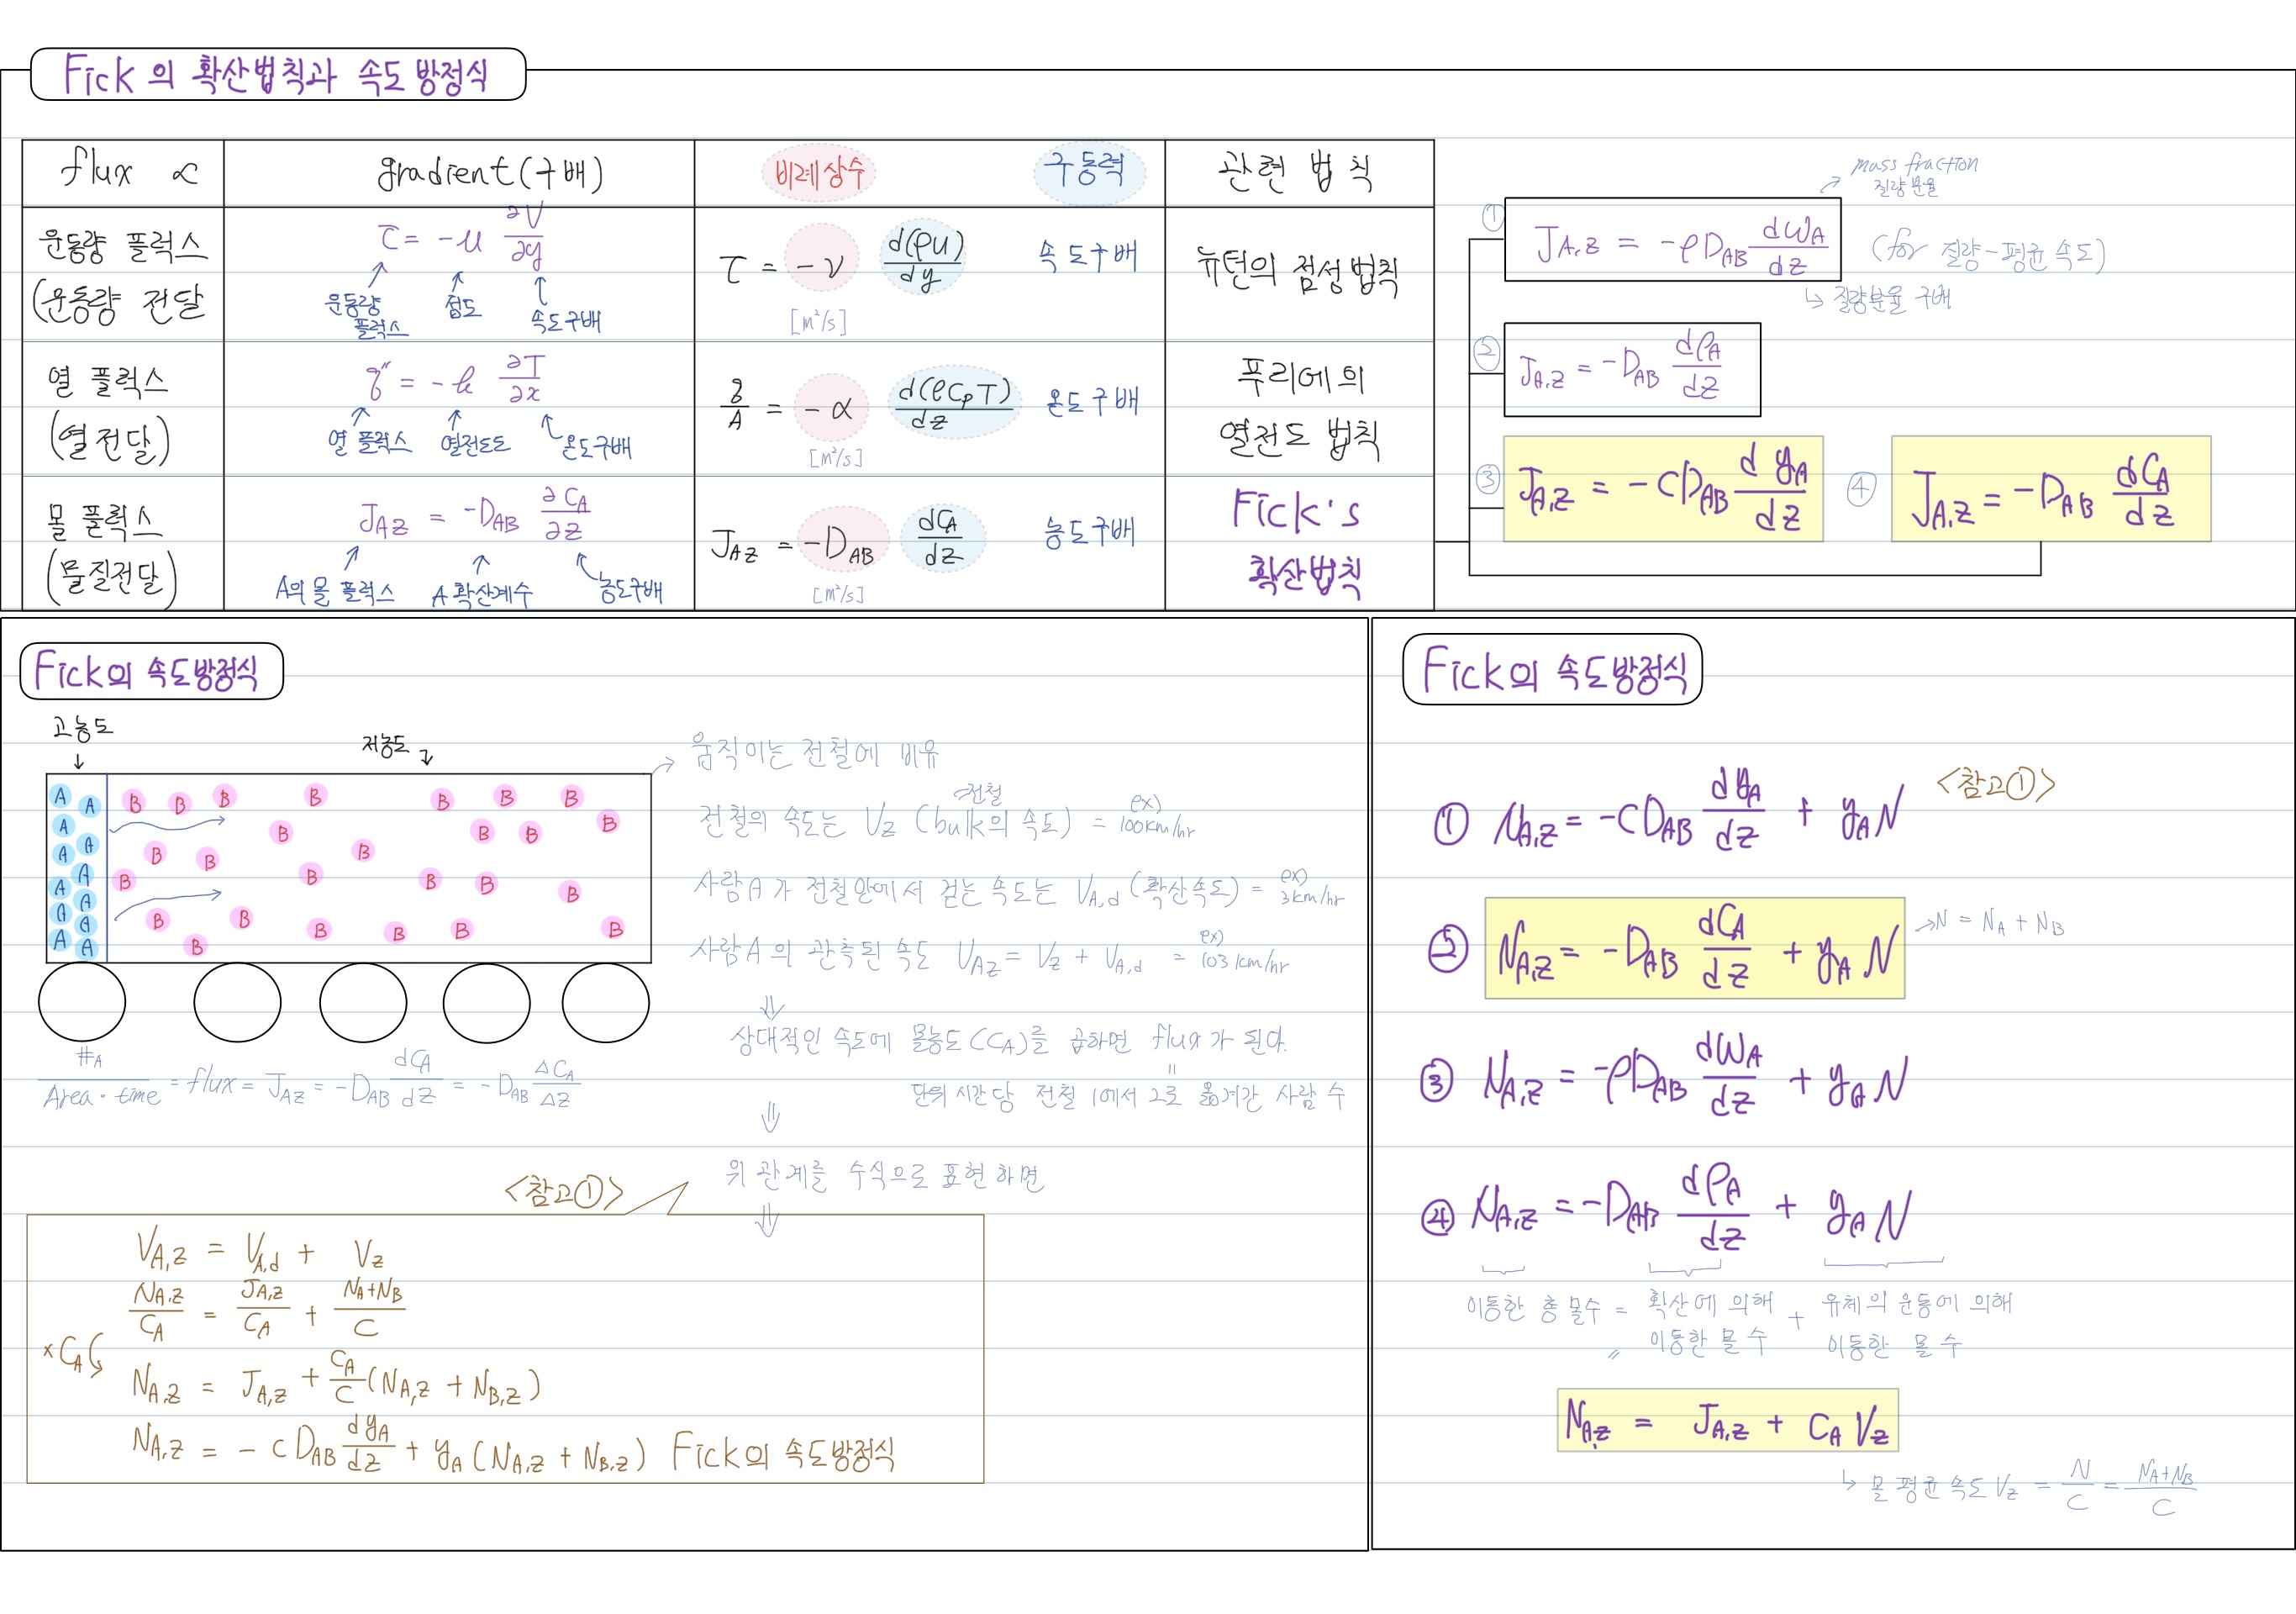 Fick의 확산법칙과 속도 방정식
flux ∝
gradient(구배)
비례상수
구동력
관련 법칙
운동량 플럭스
(운동량 전달
τ = -μ ∂V/∂y
운동량
플럭스
점도
속도구배
τ = -ν d(ρu)/dy
[m²/s]
속도구배
뉴턴의 점성법칙
열 플럭스
(열전달)
q″ = -k ∂T/∂x
열 플럭스
열전도도
온도구배
q/A = -α d(ρCpT)/dz
[m²/s]
온도구배
푸리에의
열전도 법칙
몰 플럭스
(물질전달)
J_AZ = -D_AB ∂C_A/∂z
A의 몰 플럭스
A 확산계수
농도구배
J_AZ = -D_AB dC_A/dz
[m²/s]
농도구배
Fick's
확산법칙
mass fraction
질량분율
① J_A,z = -ρD_AB dω_A/dz (for 질량-평균속도)
↳ 질량분율 구배
② J_A,z = -D_AB dρ_A/dz
③ J_A,z = -cD_AB dy_A/dz
④ J_A,z = -D_AB dC_A/dz
Fick의 속도방정식
고농도
↓
저농도
A A A A A A A A A A A A
B B B B B B B B B B B B B B B B B B B B B B B B B B
→ 움직이는 전철에 비유
전철
전철의 속도는 V_z (bulk의 속도) = ex) 100km/hr
사람A가 전철안에서 걷는 속도는 V_A,d (확산속도) = ex) 3km/hr
사람A의 관측된 속도 V_AZ = V_z + V_A,d = ex) 103km/hr
⇓
상대적인 속도에 몰농도(C_A)를 곱하면 flux가 된다.
=
단위 시간당 전철 1에서 2로 옮겨간 사람 수
⇓
위 관계를 수식으로 표현하면
⇓
#_A/Area·time = flux = J_AZ = -D_AB dC_A/dz = -D_AB ΔC_A/Δz
<참고①>
V_A,z = V_A,d + V_z
N_A,z/C_A = J_A,z/C_A + N_A+N_B/C
×C_A
N_A,z = J_A,z + C_A/C (N_A,z + N_B,z)
N_A,z = -cD_AB dy_A/dz + y_A (N_A,z + N_B,z) Fick의 속도방정식
Fick의 속도방정식
① N_A,z = -cD_AB dy_A/dz + y_A N <참고①>
② N_A,z = -D_AB dC_A/dz + y_A N → N = N_A + N_B
③ N_A,z = -ρD_AB dω_A/dz + y_A N
④ N_A,z = -D_AB dρ_A/dz + y_A N
이동한 총 몰수 = 확산에 의해 이동한 몰 수 + 유체의 운동에 의해 이동한 몰 수
N_A,z = J_A,z + C_A V_z
↳ 몰 평균 속도 V_z = N/C = N_A+N_B/C